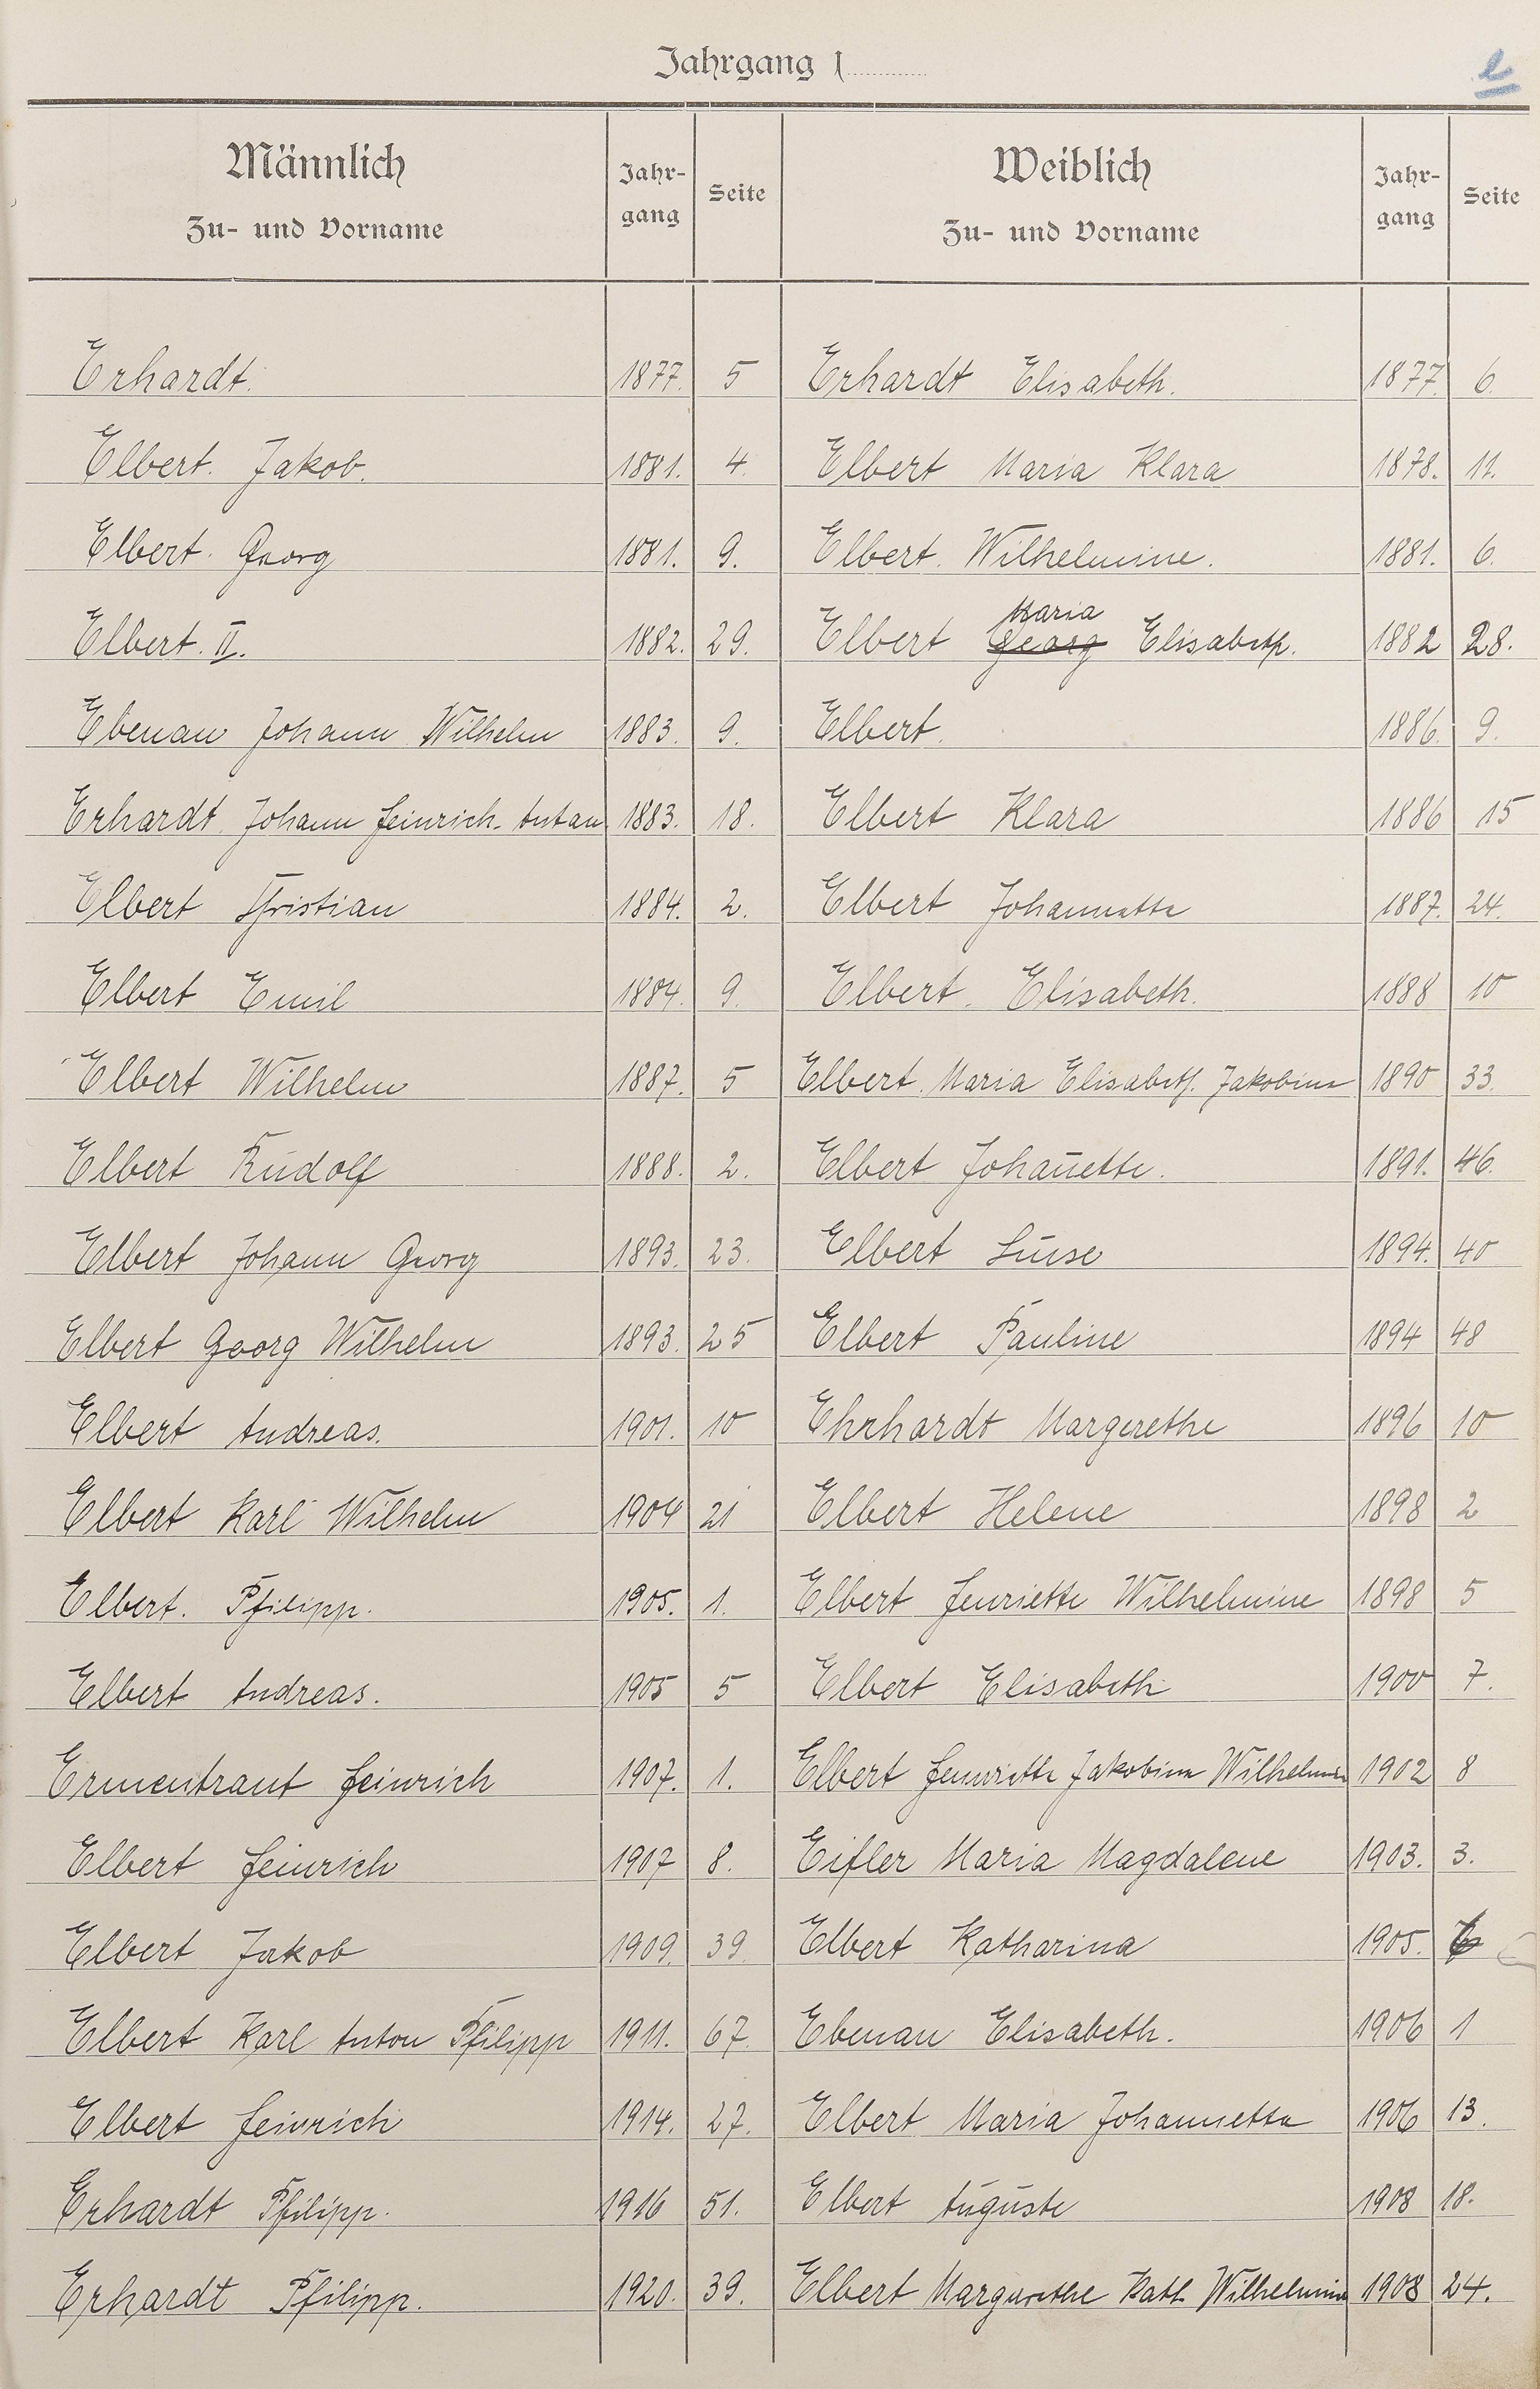 Jahrgang 1
e
Männlich
Zu- und Vorname
Jahr-
gang
Seite
Weiblich
Zu- und Vorname
Jahr-
gang
Seite
Erhardt. 1877. 5 Erhardt Elisabeth. 1877. 6.
Elbert. Jakob. 1881. 4. Elbert Maria Klara 1878. 11.
Elbert. Georg 1881. 9. Elbert. Wilhelmine. 1881. 6.
Maria
Elbert. II. 1882. 29. Elbert Georg Elisabeth. 1882 28.
Ebenau Johann Wilhelm 1883. 9. Elbert. 1886. 9.
Erhardt. Johann Heinrich. Anton 1883. 18. Elbert Klara 1886 15
Elbert Christian 1884. 2. Elbert Johannette 1887. 24.
Elbert Emil 1884. 9. Elbert. Elisabeth. 1888 10
Elbert Wilhelm 1887. 5 Elbert. Maria Elisabeth. Jakobine 1890 33.
Elbert Rudolf 1888. 2. Elbert Johan̄ette. 1891. 46.
Elbert Johann Georg 1893. 23. Elbert Luise 1894. 40
Elbert Georg Wilhelm 1893. 25 Elbert Pauline 1894 48
Elbert Andreas. 1901. 10 Ehrhardt Margerethe 1896 10
Elbert Karl Wilhelm 1904 21 Elbert Helene 1898 2
Elbert. Philipp. 1905. 1. Elbert Henriette Wilhelmine 1898 5
Elbert Andreas. 1905 5 Elbert Elisabeth 1900 7.
Ermentraut Heinrich 1907. 1. Elbert Henriette Jakobine Wilhelmine 1902 8
Elbert Heinrich 1907 8. Eifler Maria Magdalene 1903. 3.
Elbert Jakob 1909. 39 Elbert Katharina 1905.
Elbert Karl Anton Philipp 1911. 67. Ebenau Elisabeth. 1906 1
Elbert Heinrich 1914. 27. Elbert Maria Johannette 1906 13.
Erhardt Philipp. 1916 51. Elbert Auguste 1908 18.
Erhardt Philipp. 1920. 39. Elbert Margarethe Kath. Wilhelmine 1908 24.